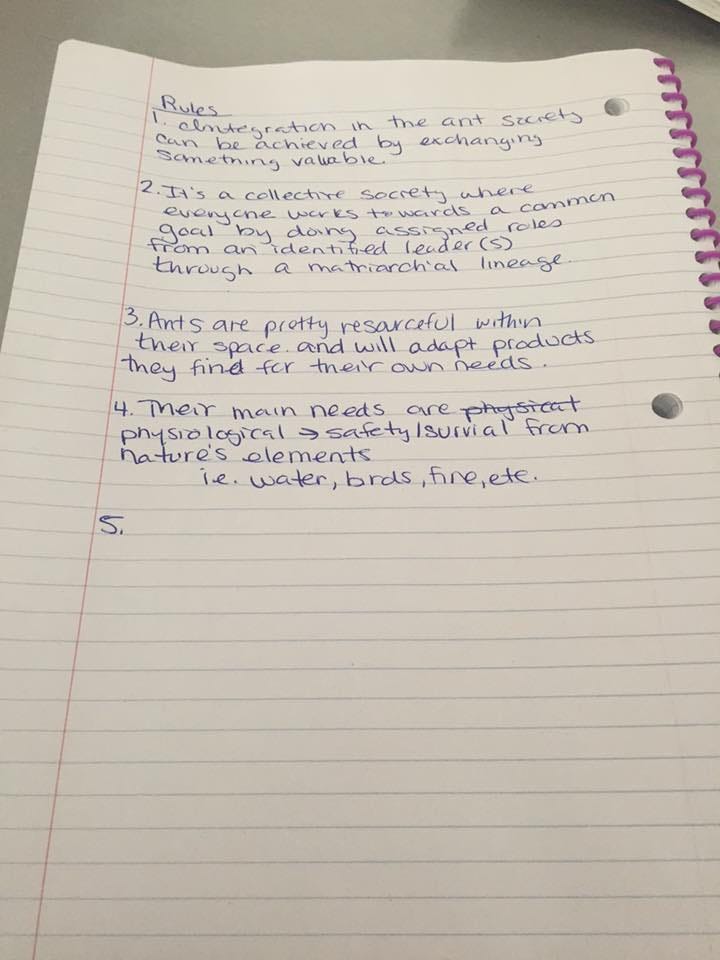 Rules
1. Integration in the ant society
can be achieved by exchanging
something valuable.
2. It's a collective society where
everyone works towards a common
goal by doing assigned roles
from an identified leader(s)
through a matriarchial lineage.
3. Ants are pretty resourceful within
their space. and will adapt products
they find for their own needs.
4. Their main needs are physical
physiological → safety/survial from
nature's elements
i.e. water, birds, fire, etc.
5.